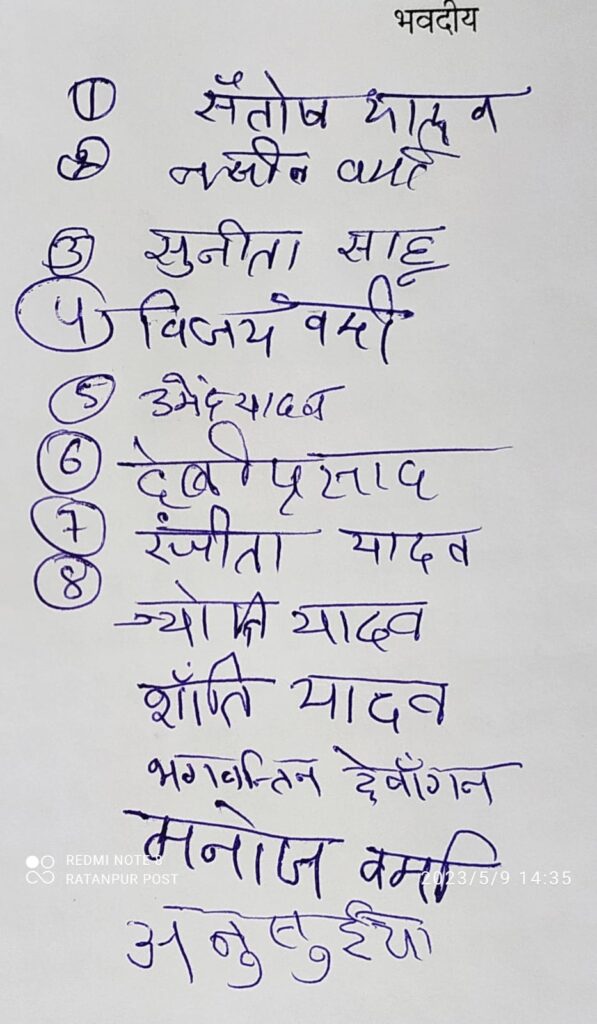 भवदीय
① सँतोष यादव
② नवीन वर्मा
③ सुनीता साहू
④ विजय वर्मा
⑤ उमेंद यादव
⑥ देवीप्रसाद
⑦ रंजीता यादव
⑧ ज्योति यादव
शाँति यादव
भगवन्तिन देवाँगन
मनोज वर्मा
REDMI NOTE 8
RATANPUR POST
2023/5/9 14:35
अनुसुईया